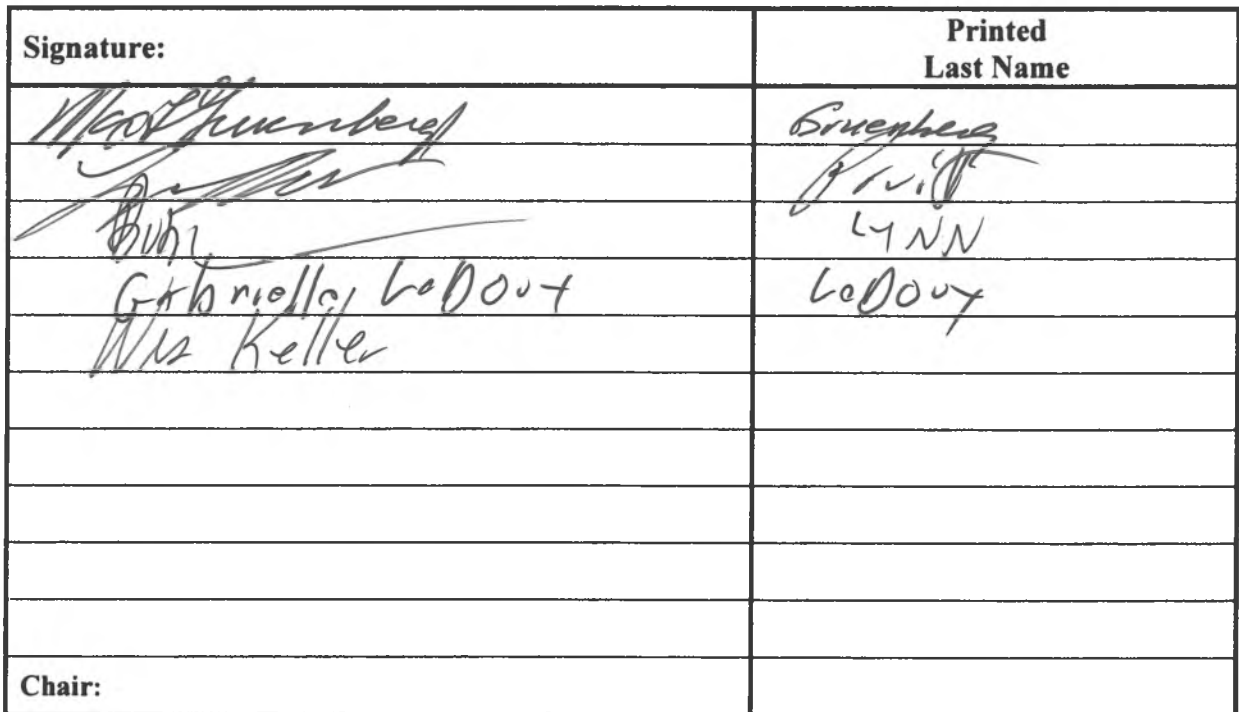 Signature: Printed
Last Name
Max Gruenberg Gruenberg
Pruitt
LYNN
Gabrielle LeDoux LeDoux
Wes Keller
Chair: